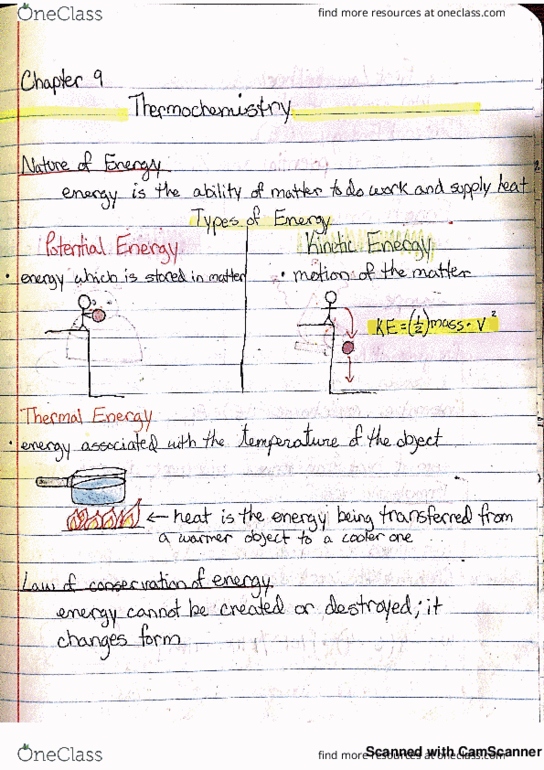 OneClass
find more resources at oneclass.com
Chapter 9
Thermochemistry
Nature of Energy
energy is the ability of matter to do work and supply heat
Types of Energy
Potential Energy
• energy which is stored in matter
Kinetic Energy
• motion of the matter
KE = (1/2) mass · v²
Thermal Energy
• energy associated with the temperature of the object
← heat is the energy being transferred from
a warmer object to a cooler one
Law of conservation of energy
energy cannot be created or destroyed; it
changes form
OneClass
find more resources at oneclass.com
Scanned with CamScanner